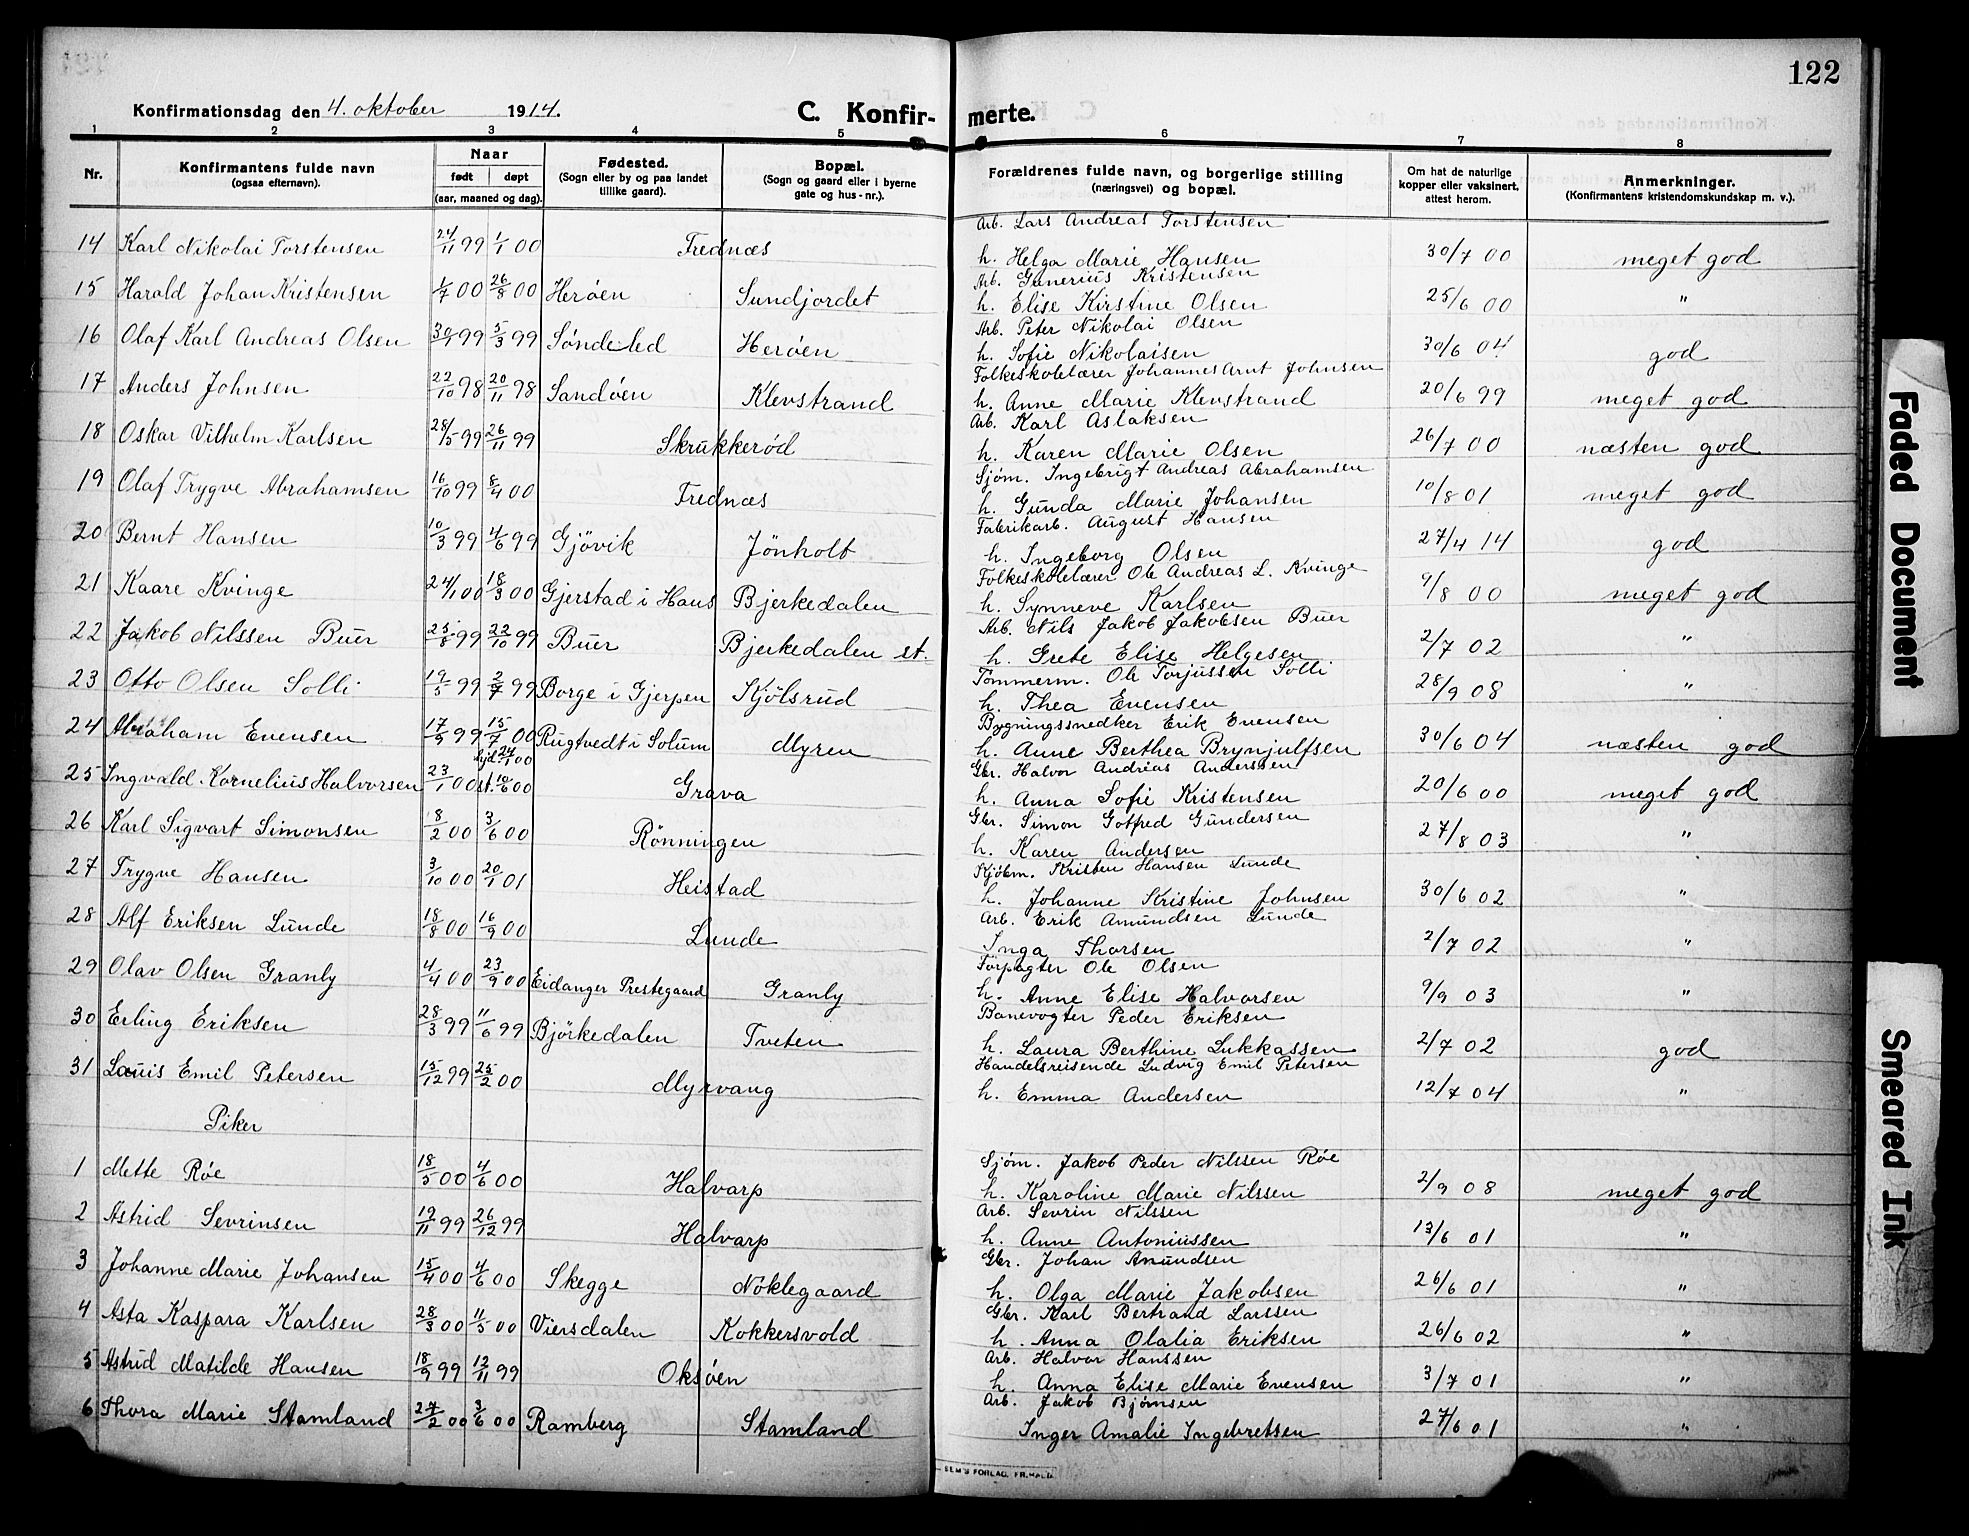 122
Konfirmationsdag den 4. oktober 1914.
C. Konfir-
merte.
1 2 3 4 5 6 7 8
Nr.
Konfirmantens fulde navn
(ogsaa efternavn).
Naar
født døpt
(aar, maaned og dag).
Fødested.
(Sogn eller by og paa landet
tillike gaard).
Bopæl.
(Sogn og gaard eller i byerne
gate og hus-nr.).
Forældrenes fulde navn, og borgerlige stilling
(næringsvei) og bopæl.
Om hat de naturlige
kopper eller vaksinert,
attest herom.
Anmerkninger.
(Konfirmantens kristendomskundskap m. v.).
Arb. Lars Andreas Torstensen
14 Karl Nikolai Torstensen 24/11 99 1/1 00 Frednæs h. Helga Marie Hansen 30/7 00 meget god
Arb. Gunerius Kristensen
15 Harald Johan Kristensen 1/7 00 26/8 00 Herøen Sundjordet h. Elise Kirstine Olsen 25/6 00 "
Arb. Peter Nikolai Olsen
16 Olaf Karl Andreas Olsen 30/1 99 5/3 99 Søndeled Herøen h. Sofie Nikolaisen 30/6 04 god
Folkeskolelærer Johannes Arnt Johnsen
17 Anders Johnsen 22/10 98 20/11 98 Sandøen Klevstrand h. Anne Marie Klevstrand 20/6 99 meget god
Arb. Karl Aslaksen
18 Oskar Vilhelm Karlsen 28/5 99 26/11 99 Skrukkerød h. Karen Marie Olsen 26/7 00 næsten god
Sjøm. Ingebrigt Andreas Abrahamsen
19 Olaf Trygve Abrahamsen 16/10 99 8/4 00 Frednæs h. Gunda Marie Johansen 10/8 01 meget god
Fabrikarb. August Hansen
20 Bernt Hansen 10/3 99 4/6 99 Gjövik Jönholt h. Ingeborg Olsen 27/4 14 god
Folkeskolelærer Ole Andreas L. Kvinge
21 Kaare Kvinge 24/1 00 18/3 00 Gjerstad i Haus Bjerkedalen h. Synneve Karlsen 9/8 00 meget god
Arb. Nils Jakob Jakobsen Buer
22 Jakob Nilssen Buer 25/8 99 22/10 99 Buer Bjerkedalen st. h. Grete Elise Helgesen 2/7 02 "
Tømmerm. Ole Torjussen Solli
23 Otto Olsen Solli 19/5 99 2/7 99 Borge i Gjerpen Kjölsrud h. Thea Evensen 28/9 08 "
Bygningssnedker Erik Evensen
24 Abraham Evensen 17/9 99 15/7 00 Rugtvedt i Solum Myren h. Anne Berthea Brynjulfsen 30/6 04 næsten god
Gbr. Halvor Andreas Anderssen
25 Ingvald Kornelius Halvorsen 23/1 00 hjd. 24/1 00 st. 10/6 00 Grava h. Anna Sofie Kristensen 20/6 00 meget god
Gbr. Simon Gotfred Gundersen
26 Karl Sigvart Simonsen 8/2 00 3/6 00 Rönningen h. Karen Andersen 27/8 03 "
Skjöbm. Kristen Hansen Lunde
27 Trygve Hansen 3/10 00 20/1 01 Heistad h. Johanne Kristine Johnsen 30/6 02 "
Arb. Erik Amundsen Lunde
28 Alf Eriksen Lunde 18/8 00 16/9 00 Lunde Inga Thorsen 2/7 02 "
Forpagter Ole Olsen
29 Olav Olsen Granly 4/4 00 23/9 00 Eidanger Prestegaard Granly h. Anne Elise Halvorsen 9/9 03 "
Banevogter Peder Eriksen
30 Erling Eriksen 28/3 99 11/6 99 Björkedalen Tveten h. Laura Berthine Lukkassen 2/7 02 god
Handelsreisende Ludvig Emil Petersen
31 Lauis Emil Petersen 15/12 99 25/2 00 Myrvang h. Emma Andersen 12/7 04 "
Piker
Sjøm. Jakob Peder Nilssen Røe
1 Mette Røe 18/5 00 4/6 00 Halvarp h. Karoline Marie Nilssen 2/9 08 meget god
Arb. Sevrin Nilssen
2 Astrid Sevrinsen 19/11 99 26/12 99 Halvarp h. Anne Antoniussen 13/6 01 "
Gbr. Johan Amundsen
3 Johanne Marie Johansen 15/4 00 4/6 00 Skegge Nöklegaard h. Olga Marie Jakobsen 26/6 01 "
Gbr. Karl Bertrand Larssen
4 Asta Kaspara Karlsen 28/3 00 11/5 00 Viersdalen Kokkersvold h. Anna Olalia Eriksen 26/6 02 "
Arb. Halvor Hanssen
5 Astrid Matilde Hansen 18/9 99 12/11 99 Oksøen h. Anna Elise Marie Evensen 3/7 01 "
Arb. Jakob Bjørnsen
6 Thora Marie Stamland 27/2 00 3/6 00 Ramberg Stamland Inger Amalie Ingebretsen 27/6 01 "
SEM'S FORLAG, FR.HALD.
Faded Document
Smeared Ink